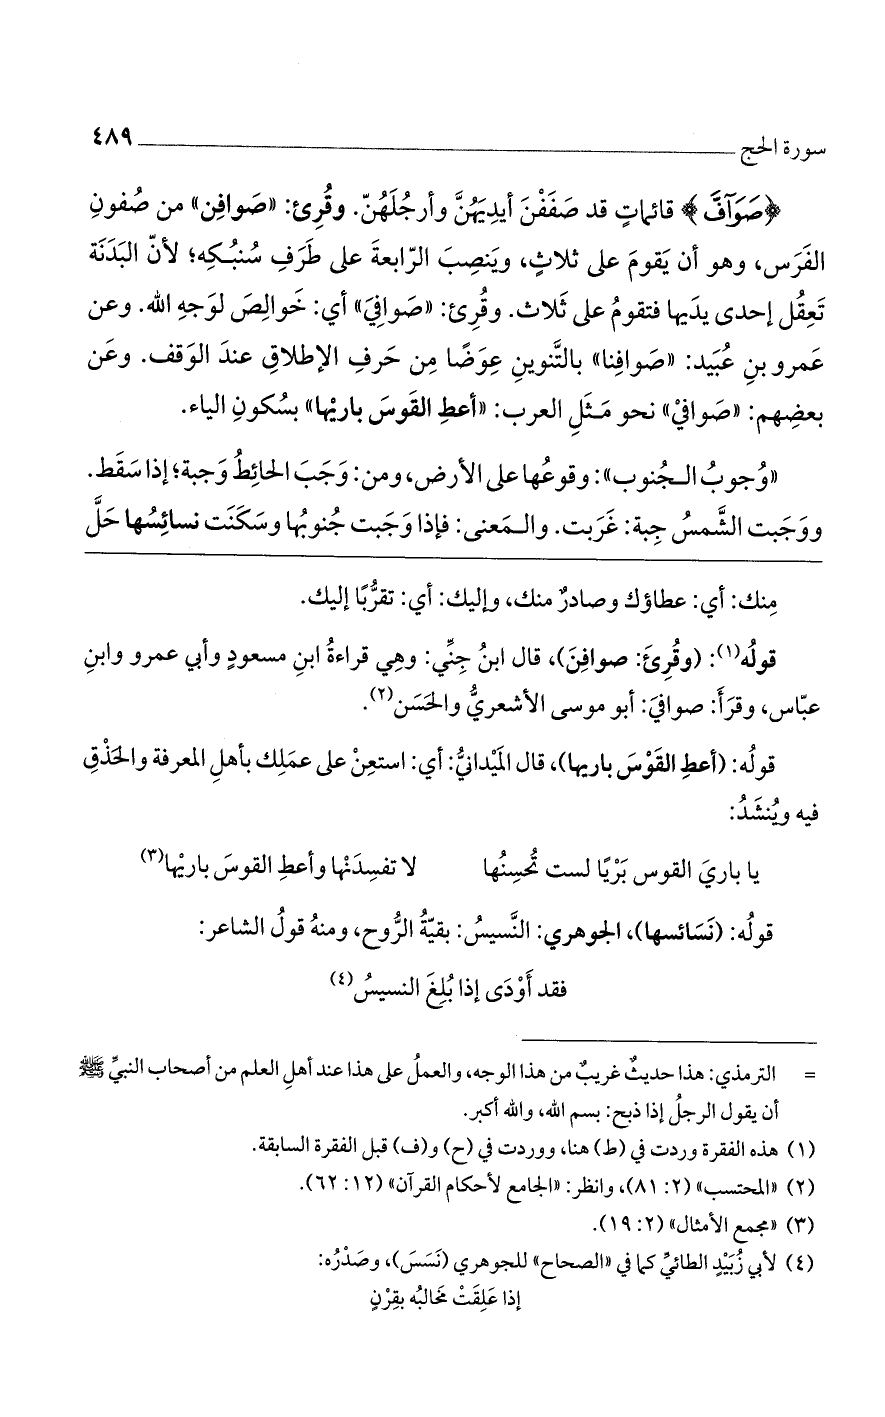 سورة الحج ٤٨٩
﴿صَوَآفَّ﴾ قائماتٍ قد صَفَفْنَ أيديَهُنَّ وأرجُلَهُنّ. وقُرِئ: «صَوافِن» من صُفونِ
الفَرَس، وهو أن يَقومَ على ثلاثٍ، ويَنصِبَ الرّابعةَ على طَرَفِ سُنبُكِه؛ لأنّ البَدَنَة
تَعقِل إحدى يدَيها فتقومُ على ثَلاث. وقُرِئ: «صَوافِيَ» أي: خَوالِصَ لوَجهِ الله. وعن
عَمرو بنِ عُبَيد: «صَوافِنا» بالتَّنوينِ عِوَضًا مِن حَرفِ الإطلاقِ عندَ الوَقف. وعَن
بعضِهم: «صَوافيْ» نحو مَثَلِ العرب: «أعطِ القَوسَ باريْها» بسُكونِ الياء.
«وُجوبُ الـجُنوب»: وقوعُها على الأرض، ومن: وَجَبَ الحائِطُ وَجبة؛ إذا سَقَط.
ووَجَبت الشَّمسُ جِبة: غَرَبت. والـمَعنى: فإذا وَجَبت جُنوبُها وسَكَنَت نسائِسُها حَلَّ
مِنك: أي: عطاؤك وصادرٌ منك، وإليك: أي: تقرُّبًا إليك.
قولُه(١): (وقُرِئَ: صوافِنَ)، قال ابنُ جِنِّي: وهِي قراءةُ ابنِ مسعودٍ وأبي عمرو وابنِ
عبّاس، وقرَأَ: صوافيَ: أبو موسى الأشعريُّ والحَسَن(٢).
قولُه: (أعطِ القَوْسَ باريها)، قال المَيْدانيُّ: أي: استعِنْ على عمَلِك بأهلِ المعرفة والحَذْقِ
فيه ويُنشَدُ:
يا باريَ القوس بَرْيًا لست تُحسِنُها لا تفسِدَنْها وأعطِ القوسَ باريْها(٣)
قولُه: (نَسَائسها)، الجوهري: النَّسيسُ: بقيّةُ الرُّوح، ومنهُ قولُ الشاعر:
فقد أَوْدَى إذا بُلِغَ النسيسُ(٤)
= الترمذي: هذا حديثٌ غريبٌ من هذا الوجه، والعملُ على هذا عند أهلِ العلم من أصحاب النبيِّ ﷺ
أن يقول الرجلُ إذا ذبح: بسم الله، والله أكبر.
(١) هذه الفقرة وردت في (ط) هنا، ووردت في (ح) و(ف) قبل الفقرة السابقة.
(٢) «المحتسب» (٢: ٨١)، وانظر: «الجامع لأحكام القرآن» (١٢: ٦٢).
(٣) «مجمع الأمثال» (٢: ١٩).
(٤) لأبي زُبَيْدٍ الطائيِّ كما في «الصحاح» للجوهري (نَسَسَ)، وصَدْرُه:
إذا عَلِقَتْ مَخالبُه بقِرْنٍ